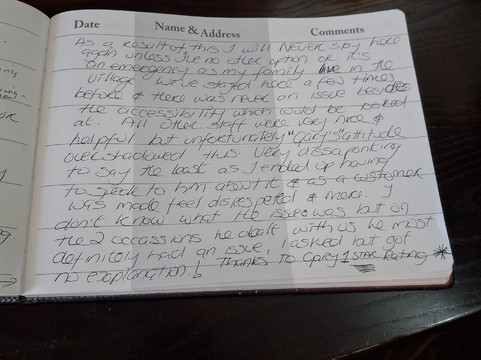 Date Name & Address Comments
As a result of this I will NEVER stay here
again unless I've no other option or it's
an emergency as my family live in the
village. We've stayed here a few times
before & there was never an issue besides
the accessibility which could be looked
at. All other staff were very nice &
helpful but unfortunately "Gary's" attitude
overshadowed this. Very dissapointing
to say the least as I ended up having
to speak to him about it & as a customer
I was made feel disrespected & more. I
don't know what the issue was but on
the 2 occassions he dealt with us he most
definitely had an issue, I asked but got
no explanation! THANKS TO Gary 1 STAR Rating *